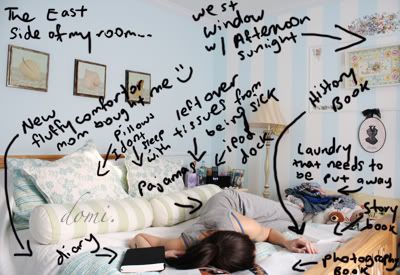 The East
side of my room...
west
window
w/ Afternoon
sunlight
New
fluffy comfortor
mom bought me
pillows
I dont
sleep
with
left over
tissues from
being sick
ipod
dock
History
Book
Laundry
that needs to
be put away
Pajamas
story
book
domi.
diary
photography
Book